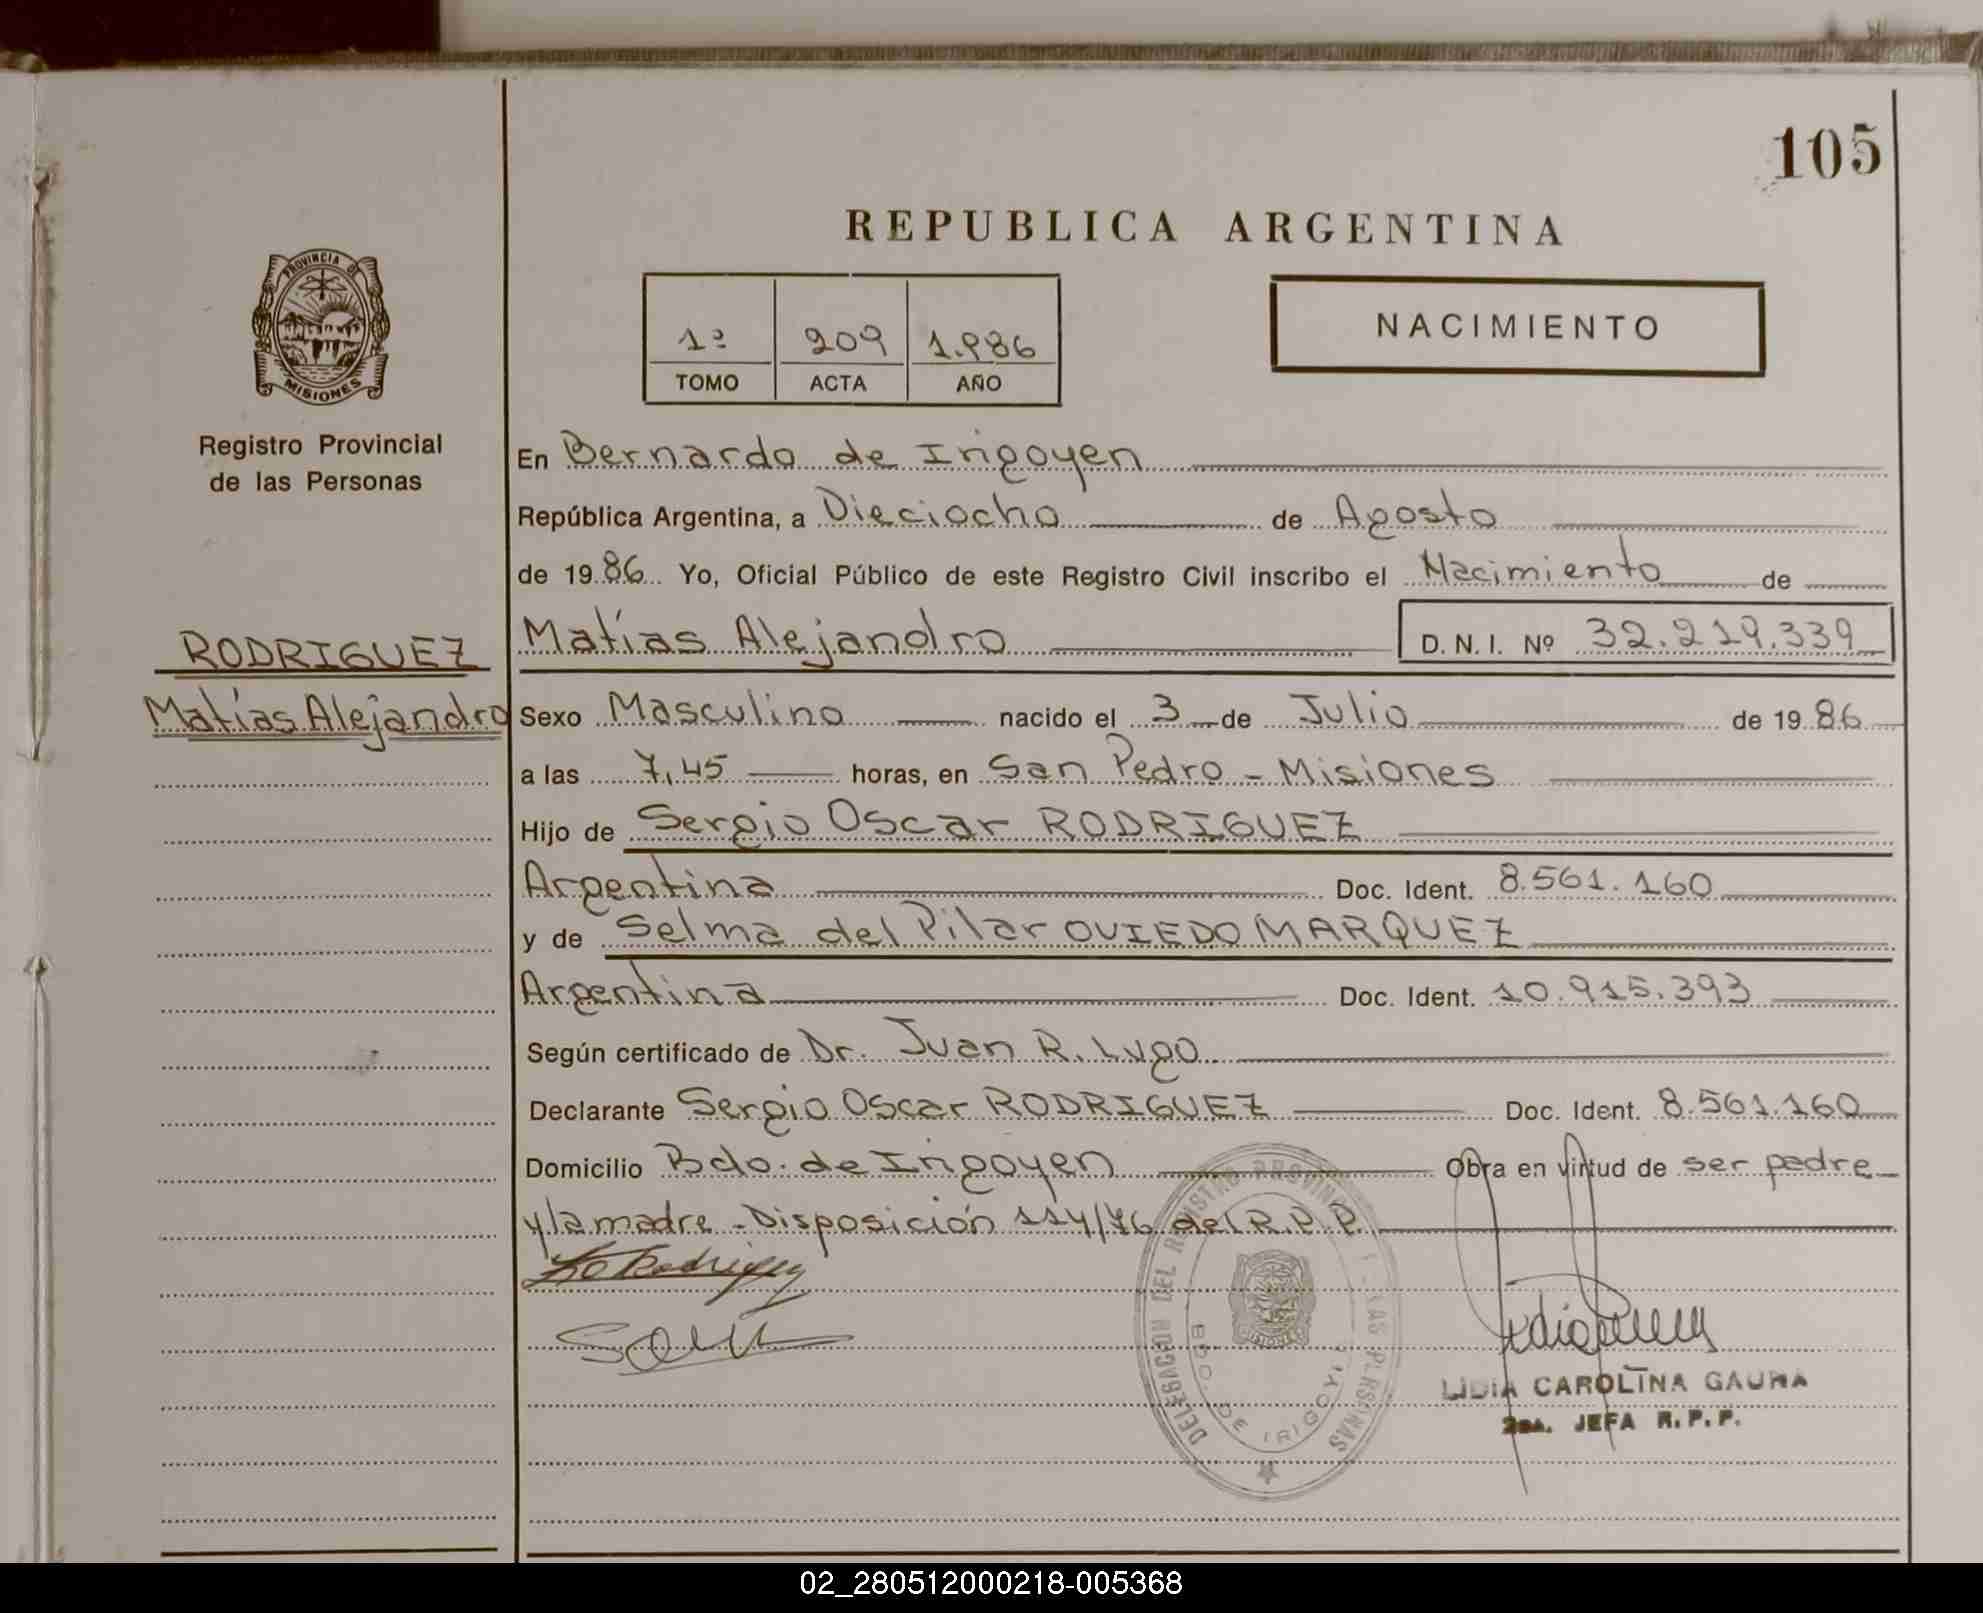 105
REPUBLICA ARGENTINA
PROVINCIA DE
MISIONES
1º 209 1.986
TOMO ACTA AÑO
NACIMIENTO
Registro Provincial
de las Personas
En Bernardo de Irigoyen
República Argentina, a Dieciocho de Agosto
de 1986 Yo, Oficial Público de este Registro Civil inscribo el Nacimiento de
RODRIGUEZ
Matías Alejandro
Matías Alejandro D.N.I. Nº 32.219.339
Sexo Masculino nacido el 3 de Julio de 1986
a las 7,45 horas, en San Pedro - Misiones
Hijo de Sergio Oscar RODRIGUEZ
Argentina Doc. Ident. 8.561.160
y de Selma del Pilar OVIEDO MARQUEZ
Argentina Doc. Ident. 10.915.393
Según certificado de Dr. Juan R. Lugo
Declarante Sergio Oscar RODRIGUEZ Doc. Ident. 8.561.160
Domicilio Bdo. de Irigoyen Obra en virtud de ser padre
y la madre - Disposición 114/76 del R.P.P.
DELEGACION DEL REGISTRO PROVINCIAL DE LAS PERSONAS
BDO. DE IRIGOYEN
LIDIA CAROLINA GAUNA
JEFA R.P.P.
02_280512000218-005368